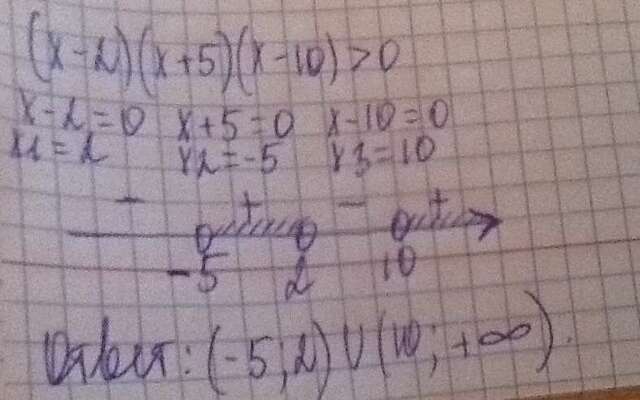 (x-2)(x+5)(x-10)>0
x-2=0 x+5=0 x-10=0
x1=2 x2=-5 x3=10
- + - +
-5 2 10
Ответ: (-5;2)U(10;+∞).